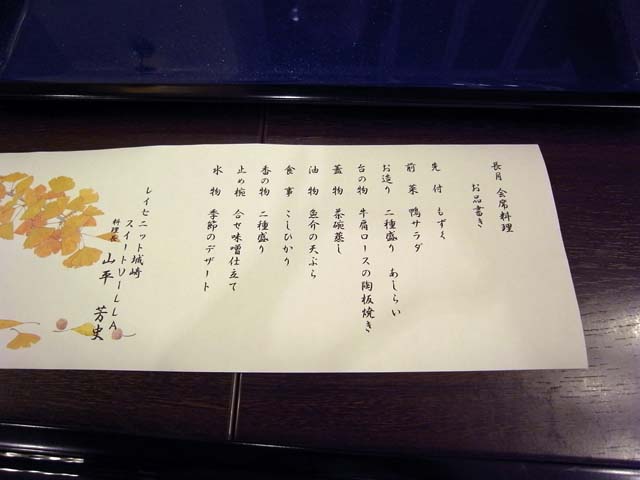 長月 会席料理
お品書き
先付 もずく
前菜 鴨サラダ
お造り 二種盛り あしらい
台の物 牛肩ロースの陶板焼き
蓋物 茶碗蒸し
油物 魚介の天ぷら
食事 こしひかり
香の物 二種盛り
止め椀 合せ味噌仕立て
水物 季節のデザート
レイセニット城崎
スイートVILLA
料理長 山平 芳史